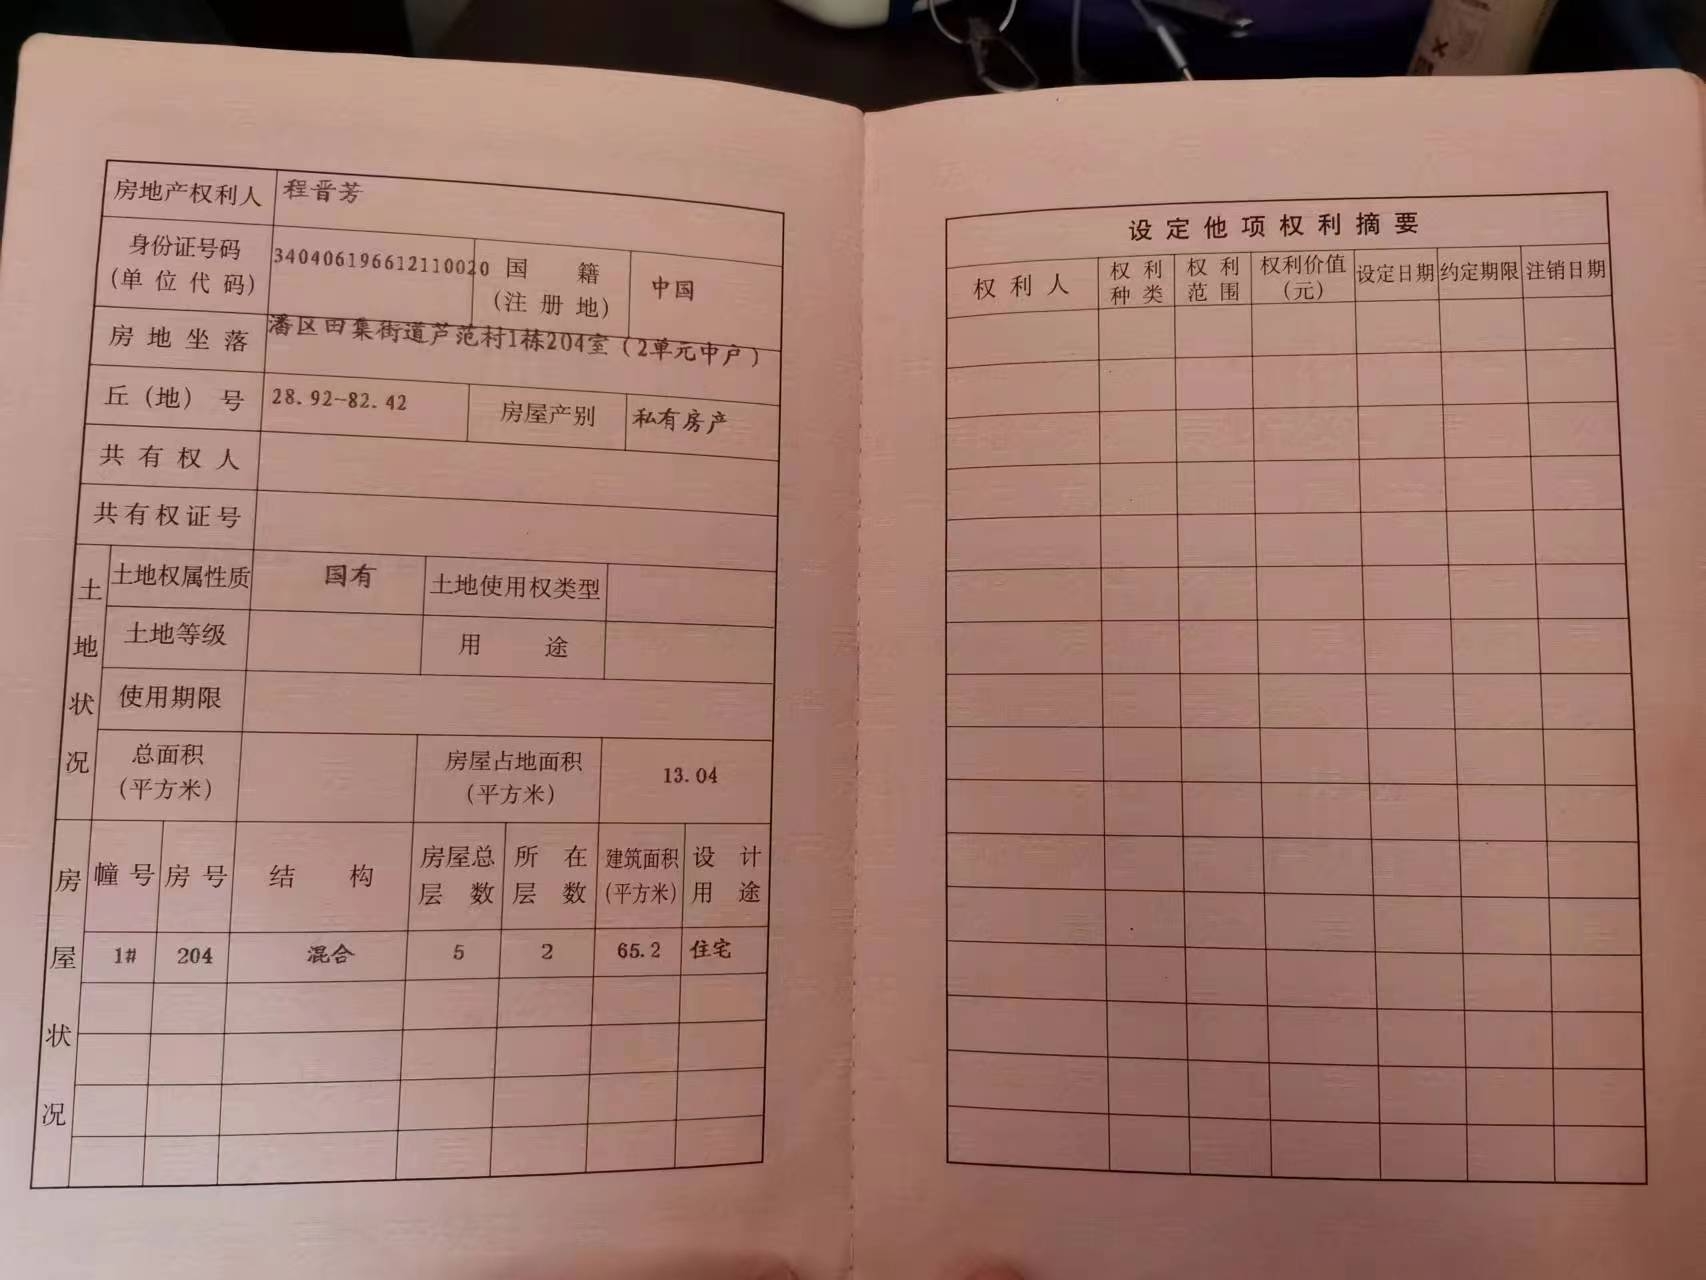 房地产权利人 程晋芳
身份证号码 340406196612110020 国籍 中国
(单位代码) (注册地)
房地坐落 潘区田集街道芦范村1栋204室（2单元中户）
丘(地)号 28.92-82.42 房屋产别 私有房产
共有权人
共有权证号
土地状况
土地权属性质 国有 土地使用权类型
土地等级 用途
使用期限
总面积 房屋占地面积 13.04
(平方米) (平方米)
房屋状况
幢号 房号 结构 房屋总层数 所在层数 建筑面积(平方米) 设计用途
1# 204 混合 5 2 65.2 住宅
设定他项权利摘要
权利人 权利种类 权利范围 权利价值(元) 设定日期 约定期限 注销日期